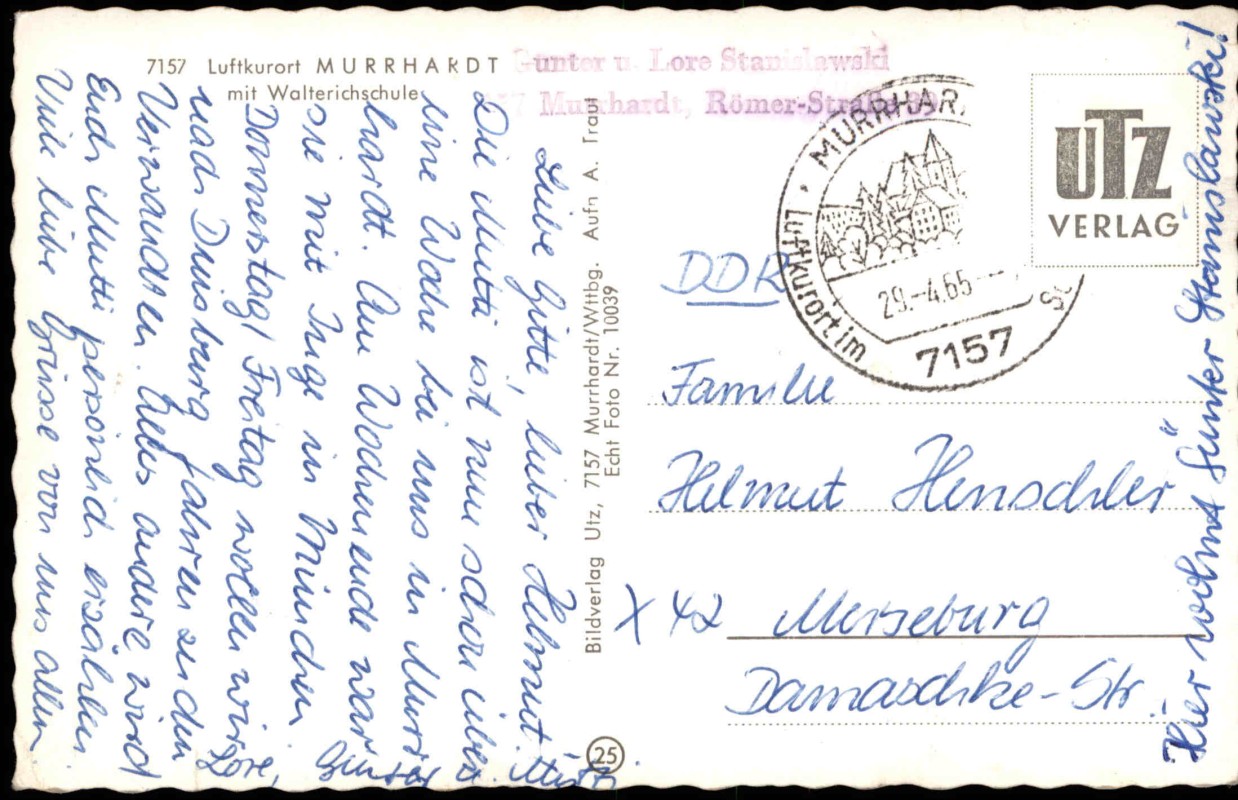 7157 Luftkurort MURRHARDT
mit Walterichschule
Gunter u. Lore Stanislawski
Murrhardt, Römer-Straße
Liebe Gitte, lieber Helmut.
Die Mutti ist nun schon über
eine Woche bei uns in Murr-
hardt. Am Wochenende war
sie mit Inge in München
Donnerstag/Freitag wollen wir
nach Duisburg fahren zu den
Verwandten. Alles andere wird
Euch Mutti persönlich erzählen.
Viele liebe Grüsse von uns allen
Lore, Günter u. Mutti
Bildverlag Utz, 7157 Murrhardt/Wttbg. Aufn A. Traut
Echt Foto Nr. 10039
25
MURRHAR
Luftkurort im
29.-4.65
7157
UTZ
VERLAG
DDR
Familie
Helmut Henschler
X 42 Merseburg
Damaschke-Str.
"Hier wohnt Günter Stanislawski!